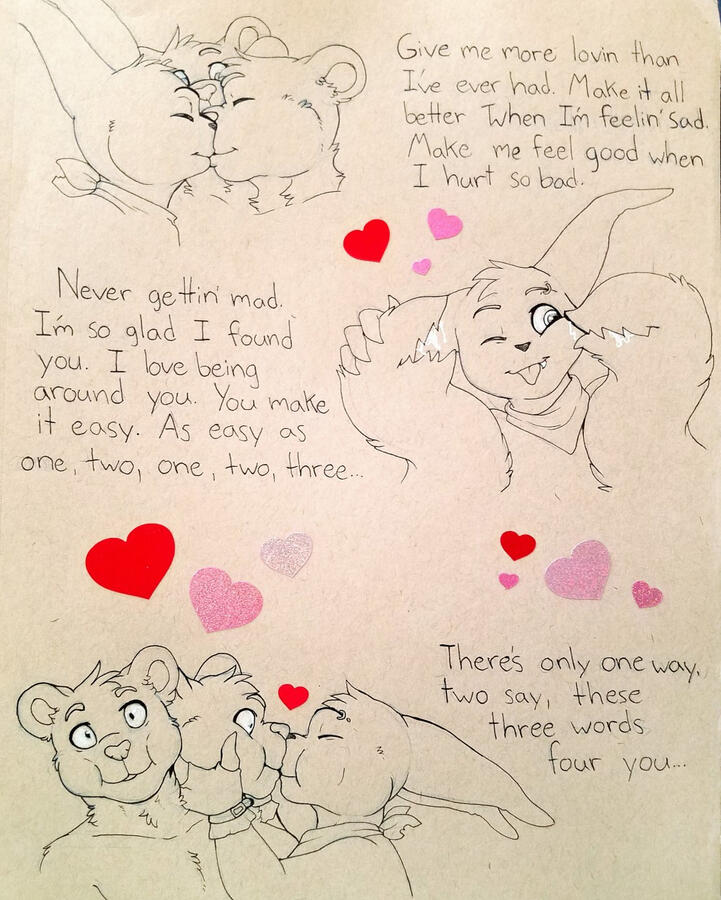 Give me more lovin than
I've ever had. Make it all
better When I'm feelin' sad.
Make me feel good when
I hurt so bad.
Never gettin' mad.
I'm so glad I found
you. I love being
around you. You make
it easy. As easy as
one, two, one, two, three...
There's only one way,
two say, these
three words
four you...